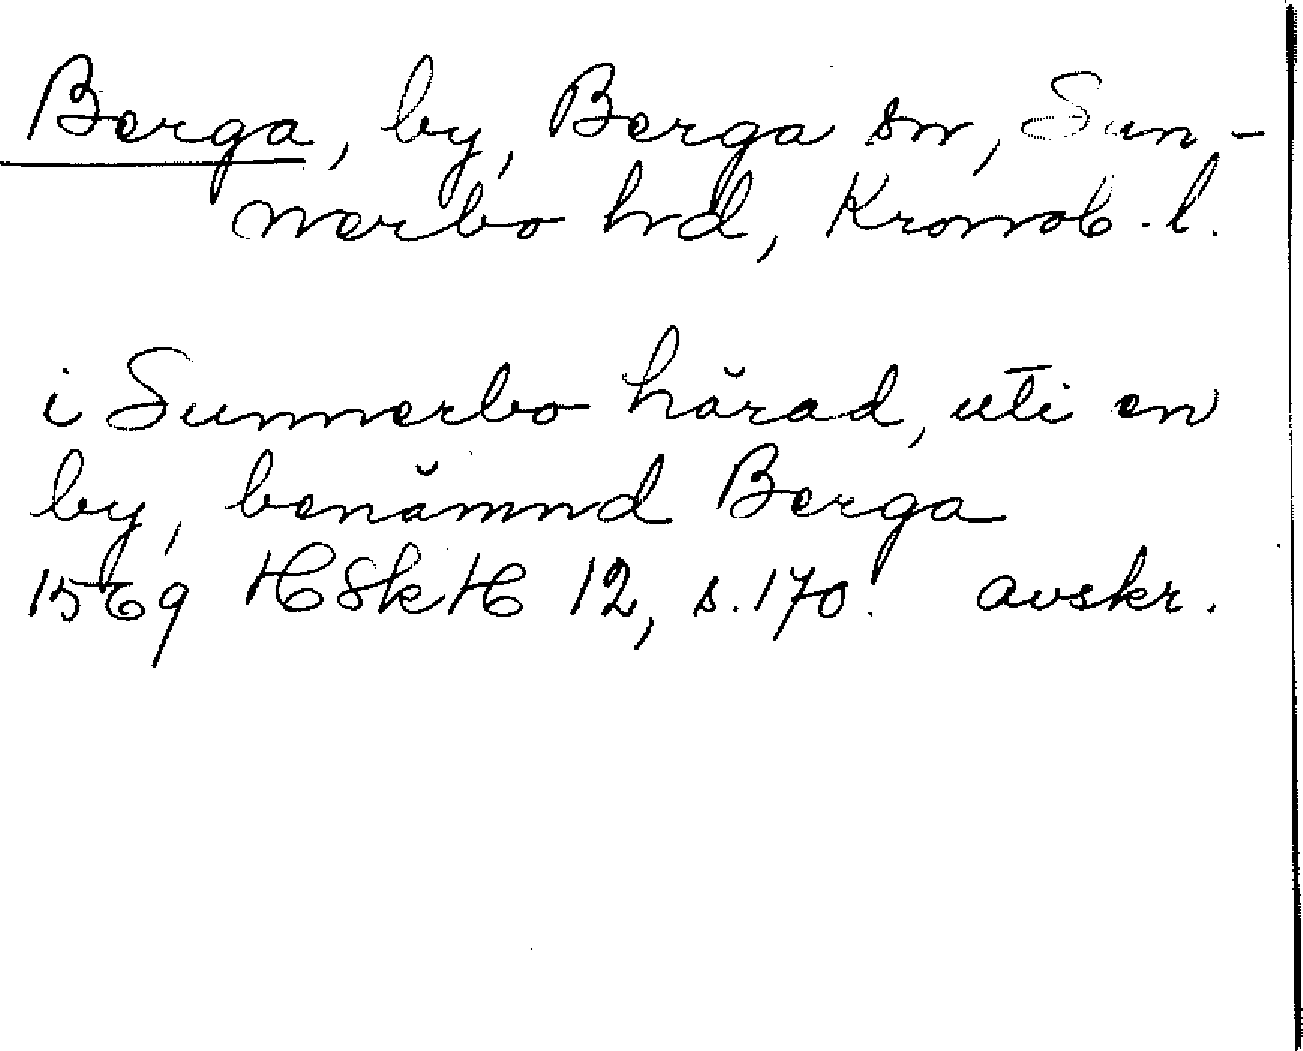 Berga, by, Berga sn, Sun-
nerbo hd, Kronob. l.
i Sunnerbo härad, uti en
by, benämnd Berga
1569 HSkH 12, s. 170. avskr.